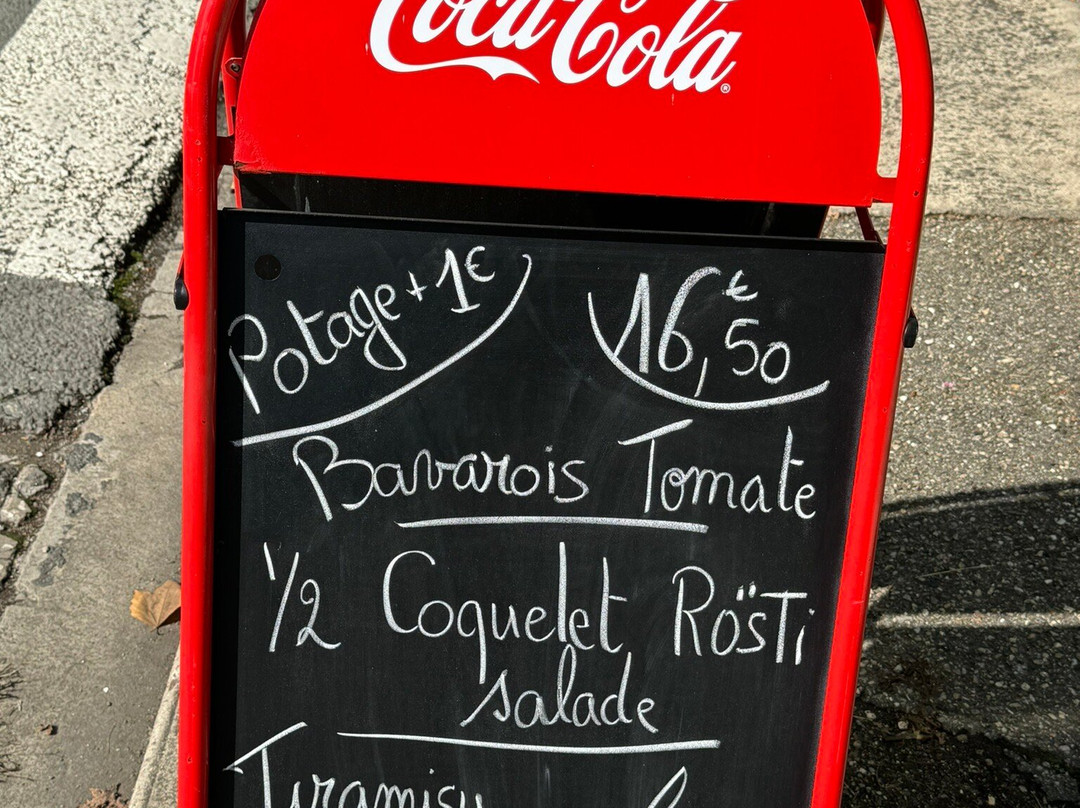 Coca-Cola®
Potage + 1€
16,50 €
Bavarois Tomate
1/2 Coquelet Rösti
salade
Tiramisu